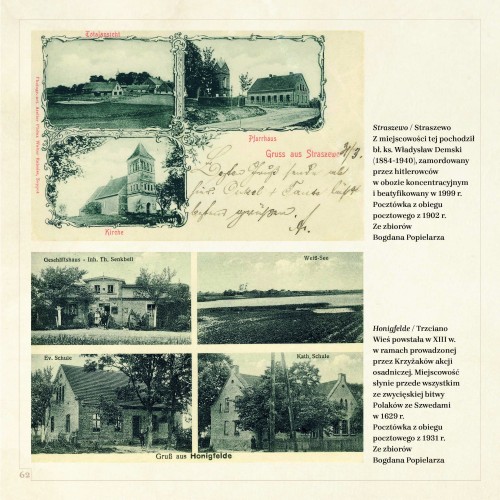 Totalansicht
Pfarrhaus
Gruss aus Straszewo
Kirche
Straszewo / Straszewo
Z miejscowości tej pochodził
bł. ks. Władysław Demski
(1884-1940), zamordowany
przez hitlerowców
w obozie koncentracyjnym
i beatyfikowany w 1999 r.
Pocztówka z obiegu
pocztowego z 1902 r.
Ze zbiorów
Bogdana Popielarza
Geschäftshaus - Inh. Th. Senkbeil
Weiß-See
Ev. Schule
Kath. Schule
Gruß aus Honigfelde
Honigfelde / Trzciano
Wieś powstała w XIII w.
w ramach prowadzonej
przez Krzyżaków akcji
osadniczej. Miejscowość
słynie przede wszystkim
ze zwycięskiej bitwy
Polaków ze Szwedami
w 1629 r.
Pocztówka z obiegu
pocztowego z 1931 r.
Ze zbiorów
Bogdana Popielarza
62